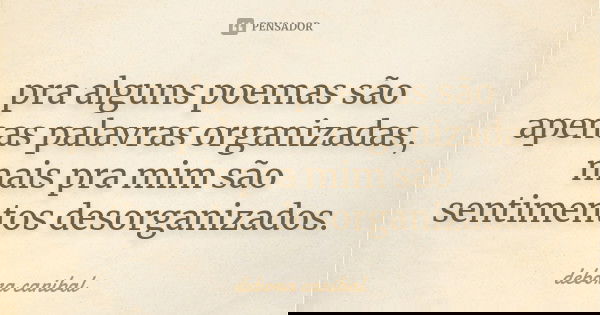 PENSADOR
pra alguns poemas são
apenas palavras organizadas,
mais pra mim são
sentimentos desorganizados.
debora canibal